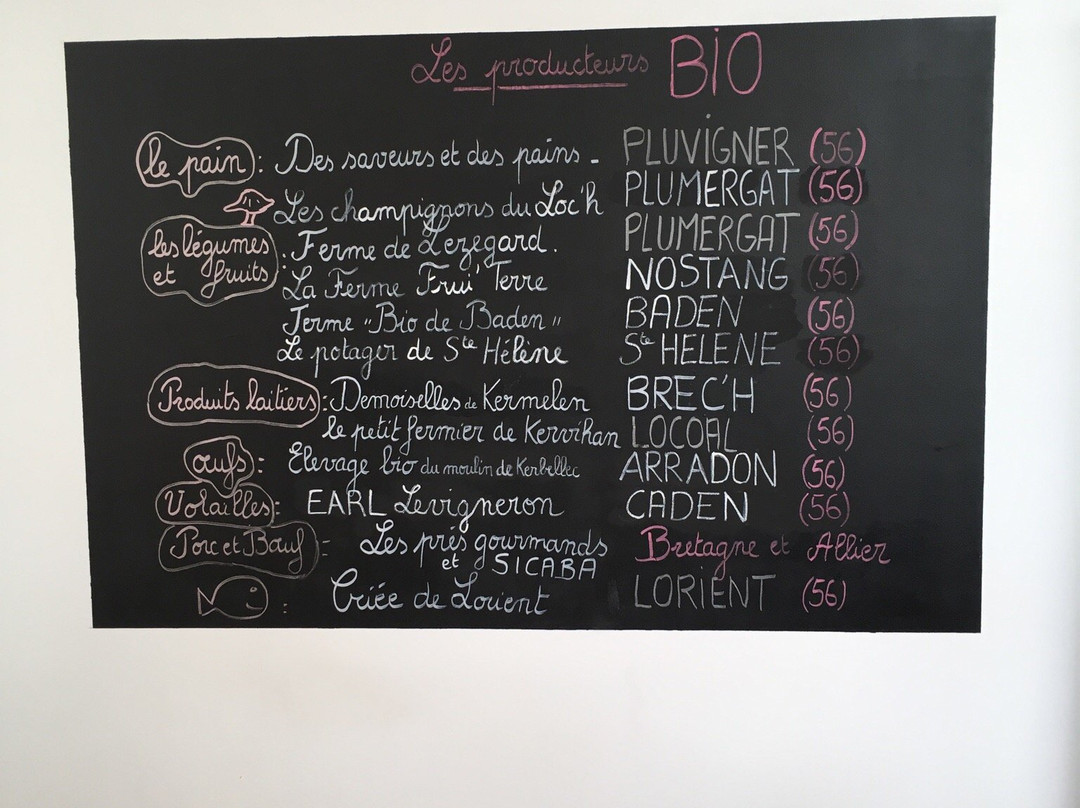 Les producteurs BiO
le pain : Des saveurs et des pains - PLUViGNER (56)
Les champignons du Loc'h PLUMERGAT (56)
les légumes et fruits : Ferme de Lezegard. PLUMERGAT (56)
La Ferme Frui' Terre NOSTANG (56)
Ferme "Bio de Baden" BADEN (56)
Le potager de Ste Hélène Ste HELENE (56)
Produits laitiers : Demoiselles de Kermelen BREC'H (56)
le petit fermier de Kervihan LOCOAL (56)
œufs : Elevage bio du moulin de Kerbellec ARRADON (56)
Volailles : EARL Levigneron CADEN (56)
Porc et Bœuf : Les prés gourmands Bretagne et Allier
et SICABA
: Criée de Lorient LORIENT (56)